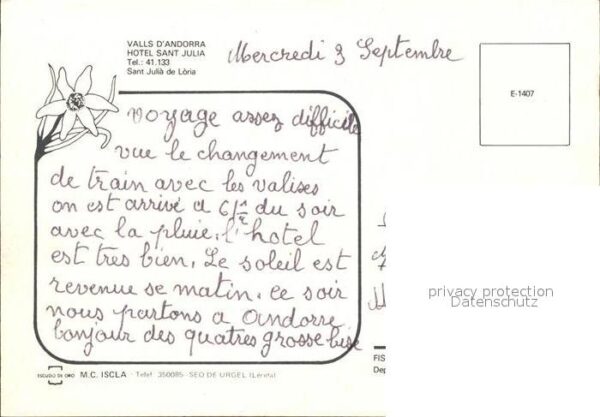 VALLS D'ANDORRA
HOTEL SANT JULIA
Tel.: 41.133
Sant Julià de Lòria
Mercredi 3 Septembre
E-1407
voyage assez difficile
vue le changement
de train avec les valises
on est arrivé a 6h 1/2 du soir
avec la pluie, l'hotel
est tres bien, Le soleil est
revenue se matin. ce soir
nous partons a Andorre
bonjour des quatres grosse bise
privacy protection
Datenschutz
ESCUDO DE ORO M.C. ISCLA - Telef. 350085 - SEO DE URGEL (Lérida)
FIS
Dep